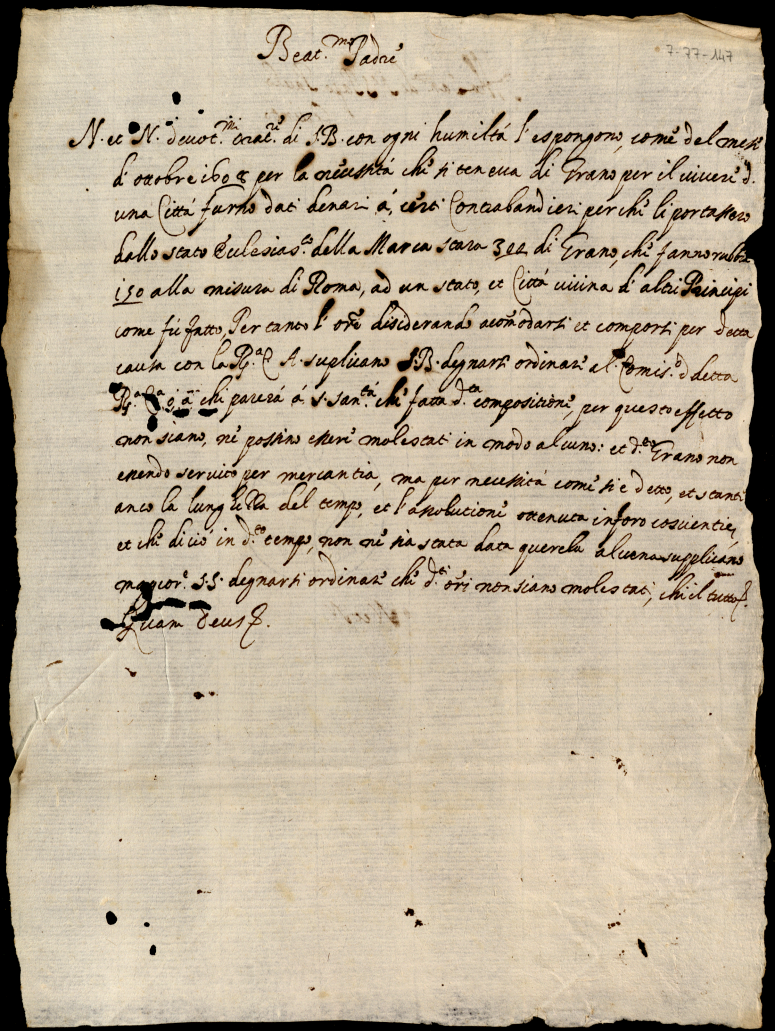 7-77-147
Beat.mo Padre
N. et N. devot.mi orat.ri di S.B. con ogni humiltá l'espongono, come del mese
d'ottobre 1608 per la necessitá che si teneva di Grano per il vivere d.
una Cittá furno dati denari á, certi Contrabandieri perche li portassero
dallo stato Eccle­sias.co della Marca stara 300 di Grano, che fanno rubbia
150 alla misura di Roma, ad un stato, et Cittá vicina d'altri Principi
come fú fatto, Per tanto l'ori desiderando acomodarsi et comporsi per detta
causa con la R.a C. A. suplicano S.B. degnarsi ordinare al Comis.o d detta
R.a C.a ó, á chi parerá á S. San.tá che fatta d.ta compositione, per questo effetto
non siano, ne possino essere molestati in modo alcuno: et d.to Grano non
essendo servito per mercantia, ma per necessitá come si è detto, et stanti
anco la lunghezza del tempo, et l'assolutione ottenuta in foro coscientie,
et che di ció in d.to tempo, non ne sia stata data querela alcuna supplicano
S.S. degnarsi ordinare che d.ti ori non siano molestati, che il tutto
Quam Deus